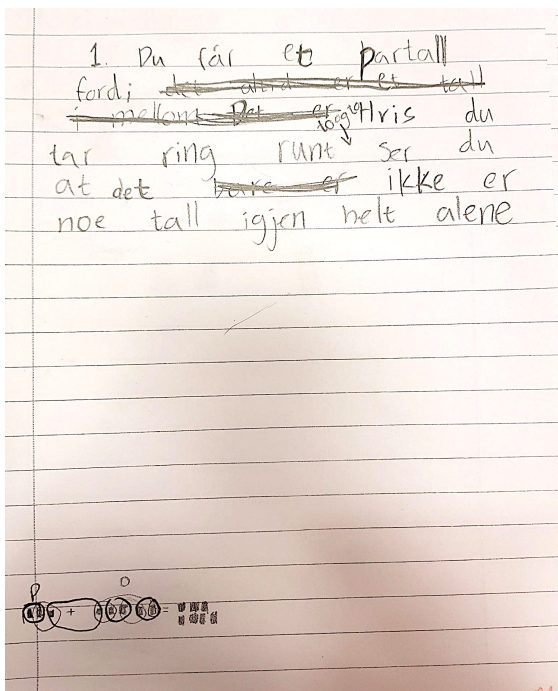 1. Du får et partall
fordi det alltid er et tall
i mellom. Det er Hvis du
10og10
tar ring runt ser du
at det bare er ikke er
noe tall igjen helt alene
P O
+ =